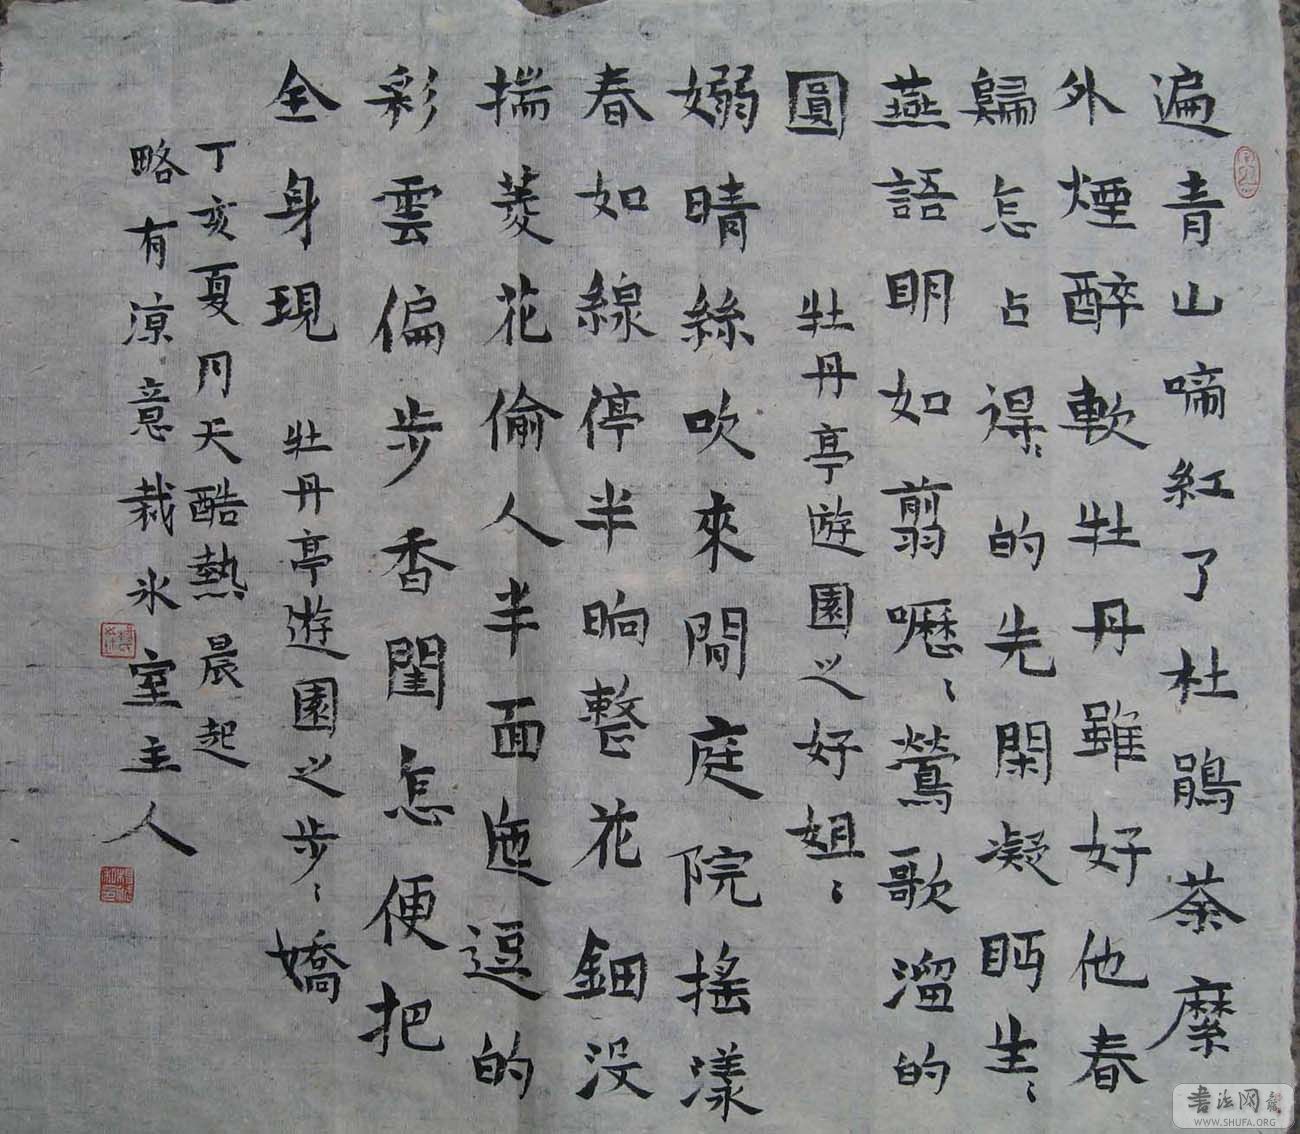 遍青山啼紅了杜鵑荼縻
外煙醉軟牡丹雖好他春
歸怎占得〻的先閑凝眄生〻
燕語明如翦嚦〻鶯歌溜的
圓 牡丹亭遊園之好姐〻
嫋晴絲吹來閒庭院搖漾
春如線停半晌整花鈿没
揣菱花偷人半面迤逗的
彩雲偏步香閨怎便把
全身現 牡丹亭遊園之步〻嬌
丁亥夏月天酷熱晨起
略有涼意栽氷室主人
书法网
WWW.SHUFA.ORG